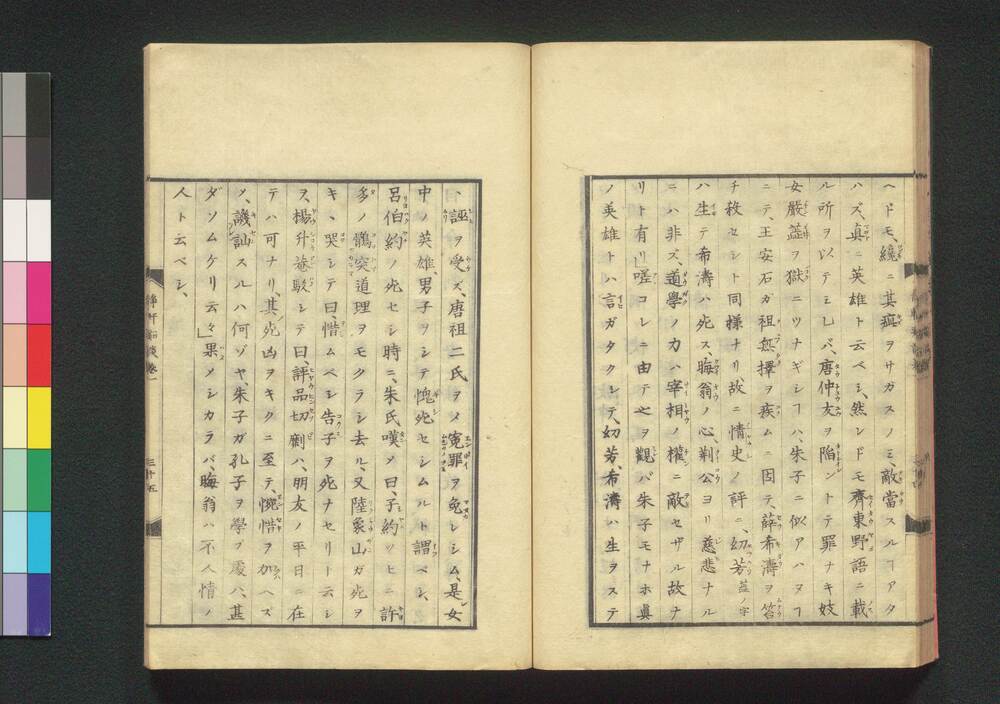 ヘドモ、纔ニ其瘢ヲサガスノミ、敵當スルヿアタ
ハズ、真ニ英雄ト云ベシ、然レドモ齊東野語ニ載
ル所ヲ以テミレバ、唐仲友ヲ陥ントテ罪ナキ妓
女嚴蕋ヲ獄ニツナギシヿハ、朱子ニ似アハヌヿ
ニテ、王安石ガ祖無擇ヲ疾ムニ因テ、薛希濤ヲ笞
チ殺セシト同様ナリ故ニ情史ノ評ニ、幼芳蕋ノ字
ハ生テ希濤ハ死ス、晦翁ノ心、荆公ヨリ慈悲ナル
ニハ非ズ、道學ノ力ハ宰相ノ權ニ敵セザル故ナ
リト有リ」嗟コレニ由テ之ヲ觀バ朱子モナホ真
ノ英雄トハ言ガタクシテ、幼芳、希濤ハ生ヲステ
ヽ誣ヲ受ズ、唐祖二氏ヲメ寃罪ヲ免レシム、是女
中ノ英雄、男子ヲシテ愧死セシムルト謂ベシ、
呂伯約ノ死セシ時ニ、朱氏嘆メ曰、子約ツヒニ許
多ノ鶻突道理ヲモクラシ去ル、又陸象山ガ死ヲ
キヽ哭シテ曰、惜ムベシ告子ヲ死ナセリト云シ
ヲ、楊升菴駁シテ曰、評品切劘ハ、朋友ノ平日ニ在
テハ可ナリ、其死凶ヲキクニ至テ、惋惜ヲ加ヘズ
メ、譏訕スルハ何ゾヤ、朱子ガ孔子ヲ學ブ處ハ、甚
ダソムケリ云々」果メシカラバ、晦翁ハ不人情ノ
人ト云ベシ、
三十五